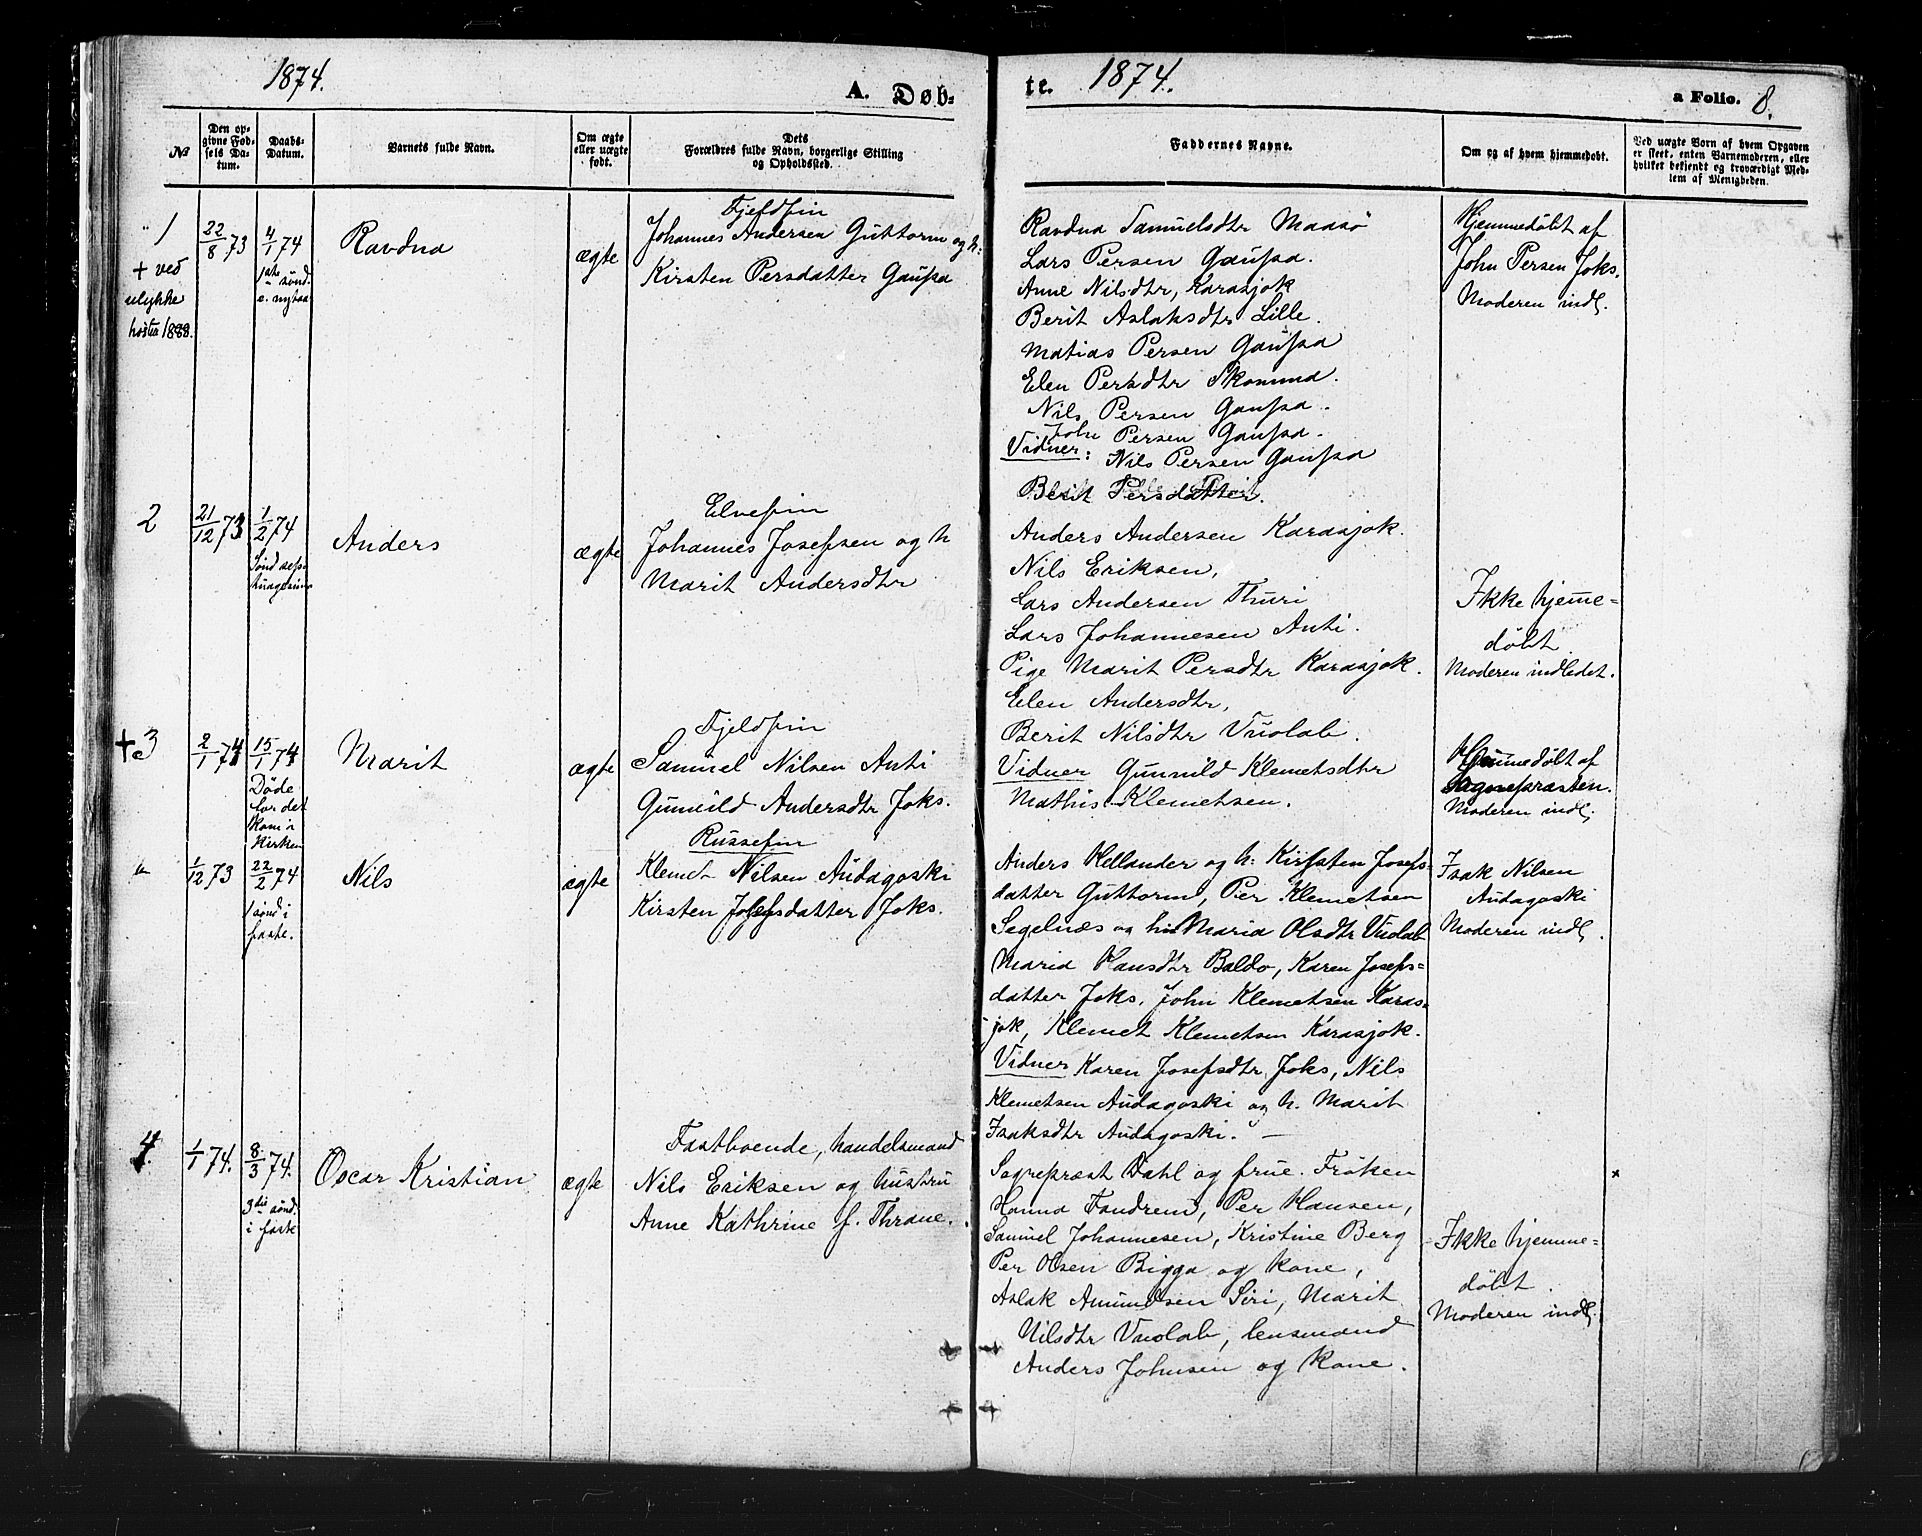 1874.
A. Døb-
te. 1874.
a Folio. 8.
№
Den op-
givne Fød-
sels Da-
tum.
Daabs-
Datum.
Barnets fulde Navn.
Om ægte
eller uægte
født.
Dets
Forældres fulde Navn, borgerlige Stilling
og Opholdssted.
Faddernes Navne.
Om og af hvem hjemmedøbt.
Ved uægte Børn af hvem Opgaven
er skeet, enten Barnemoderen, eller
hvilket bekjendt og troværdigt Med-
lem af Menigheden.
1
+ ved
ulykke
høsten 1888.
22/8 73
4/1 74
1ste sønd.
e. nytaar
Ravdna
ægte
Fjeldfin
Johannes Andersen Guttorm og h:
Kirsten Persdatter Gaupsa
Ravdna Samuelsdtr Maasø
Lars Persen Gaupsa.
Anne Nilsdtr, Karasjok
Berit Aslaksdtr Lille.
Matias Persen Gaupsa
Elen Persdtr Skomma.
Nils Persen Gaupsa.
John Persen Gaupsa.
Vidner: Nils Persen Gaupsa
Berit Persdatter.
Hjemmedøbt af
John Persen Joks.
Moderen indl.
2
21/12 73
1/2 74
Sønd
Anders
ægte
Elvefin
Johannes Josefsen og h
Marit Andersdtr
Anders Andersen Karasjok.
Nils Eriksen,
Lars Andersen Thuri
Lars Johannesen Anti.
Pige Marit Persdtr Karasjok.
Elen Andersdtr,
Berit Nilsdtr Vuolab.
Ikke hjeme=
døbt.
Moderen indledet.
+3
2/1 74
15/1 74
Døde
før det
kom i
Kirken
Marit
ægte
Fjeldfin
Samuel Nilsen Anti
Gunild Andersdtr Joks.
Vidner Gunnild Klemetsdtr
Mathis Klemetsen.
Hjemmedøbt af
Sognepræsten.
Moderen indl.
1/12 73
22/2 74
1 sønd i
faste.
Nils
ægte
Russefin
Klemet Nilsen Audagoski
Kirsten Josefsdatter Joks.
Anders Hellander og h: Kirsten Josefs-
datter Guttorm, Per Klemetsen
Segelnæs og h Maria Olsdtr Vuolab
Maria Hansdtr Baldo, Karen Josefs=
datter Joks, John Klemetsen Karas-
jok, Klemet Klemetsen Karasjok.
Vidner Karen Josefsdtr Joks, Nils
Klemetsen Audagoski og h. Marit
Isaksdtr Audagoski. —
Isak Nilsen
Audagoski
Moderen indl.
4.
1/1 74.
8/3 74.
3die sønd.
i faste
Oscar Kristian
ægte
Fastboende, handelsmand
Nils Eriksen og hustru
Anne Kathrine f. Thrane.
Sognepræst Dahl og frue. Frøken
Hanna Fandrem, Per Hansen,
Samuel Johannesen, Kristine Berg
Per Olsen Bigga og Kone,
Aslak Amundsen Siri, Marit
Nilsdtr Vuolab, lensmand
Anders Johnsen og Kone.
Ikke hjemme=
døbt.
Moderen indl.